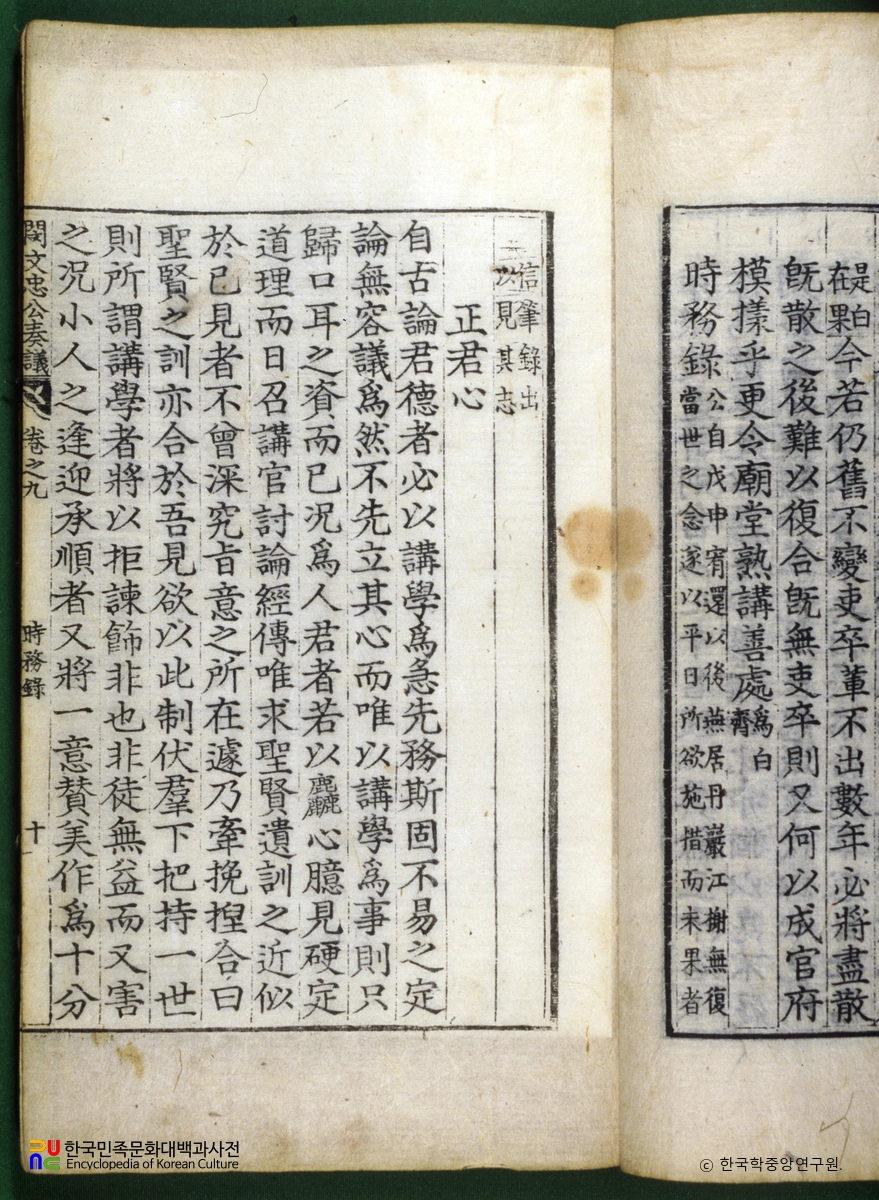 是白
在果今若仍舊不變吏卒軰不出數年必將盡散
旣散之後難以復合旣無吏卒則又何以成官府
模㨾乎更令廟堂熟講善處爲白
齊
時務錄公自戊申宥還以後燕居丹巖江榭無復
當世之念遂以平日所欲施措而未果者
信筆錄出
以見其志
正君心
自古論君德者必以講學爲急先務斯固不易之定
論無容議爲然不先立其心而唯以講學爲事則只
歸口耳之資而已况爲人君者若以麤心臆見硬定
道理而日召講官討論經傳唯求聖賢遺訓之近似
於己見者不曾深究旨意之所在遽乃牽挽捏合曰
聖賢之訓亦合於吾見欲以此制伏羣下把持一世
則所謂講學者將以拒諫飾非也非徒無益而又害
之况小人之逢迎承順者又將一意賛美作爲十分
閔文忠公奏議 卷之九 時務錄 十
한국민족문화대백과사전
Encyclopedia of Korean Culture
© 한국학중앙연구원.